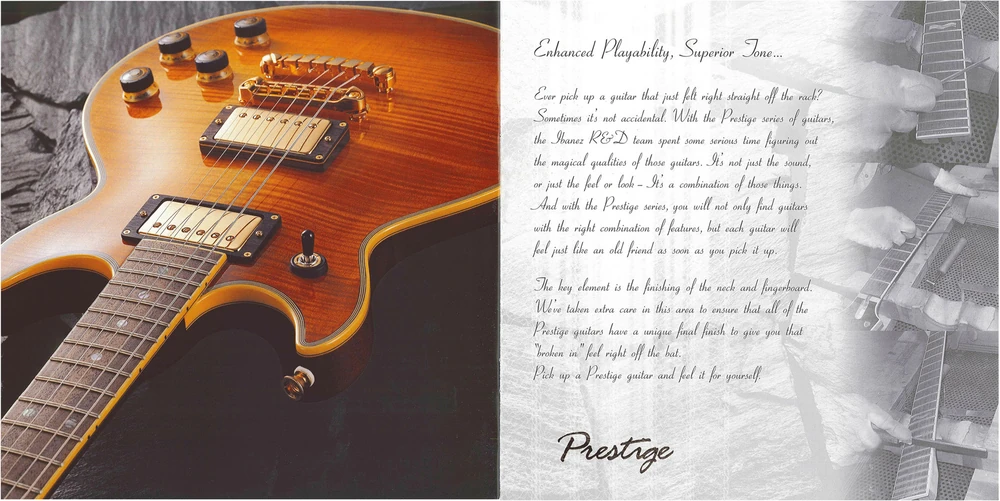 Enhanced Playability, Superior Tone...
Ever pick up a guitar that just felt right straight off the rack?
Sometimes it's not accidental. With the Prestige series of guitars,
the Ibanez R&D team spent some serious time figuring out
the magical qualities of those guitars. It's not just the sound,
or just the feel or look – It's a combination of those things.
And with the Prestige series, you will not only find guitars
with the right combination of features, but each guitar will
feel just like an old friend as soon as you pick it up.
The key element is the finishing of the neck and fingerboard.
We've taken extra care in this area to ensure that all of the
Prestige guitars have a unique final finish to give you that
"broken in" feel right off the bat.
Pick up a Prestige guitar and feel it for yourself.
Prestige